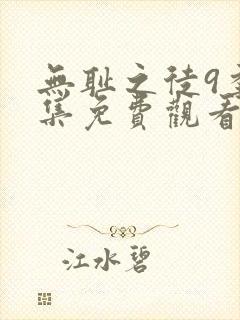 無耻之徒9
集免費觀看
江水碧